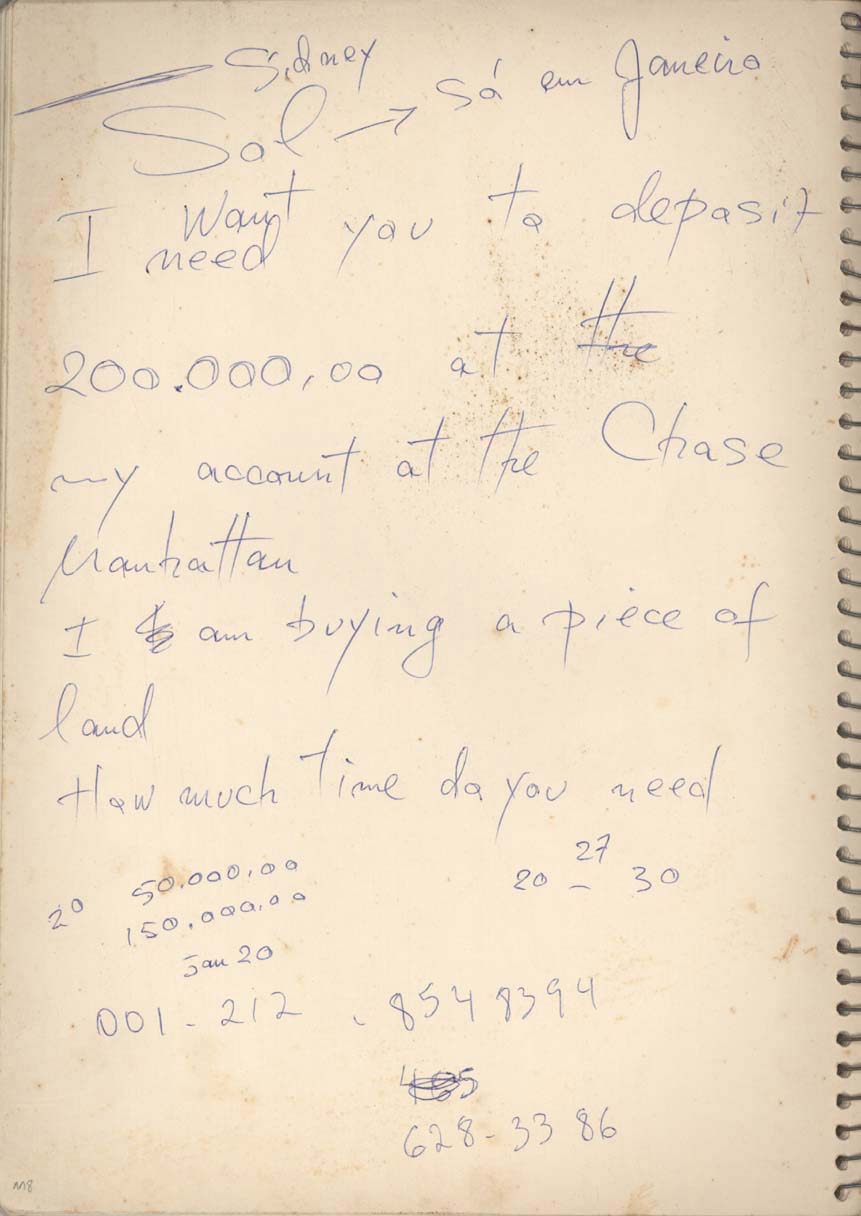 Sidney
Sol → Só em Janeiro
Want
I need you to deposit
200.000,00 at the
my account at the Chase
Manhattan
I am buying a piece of
land
How much time do you need
50.000,00
27
20 150.000,00 20 - 30
Jan 20
001 - 212 . 854 8394
628 - 33 86
118